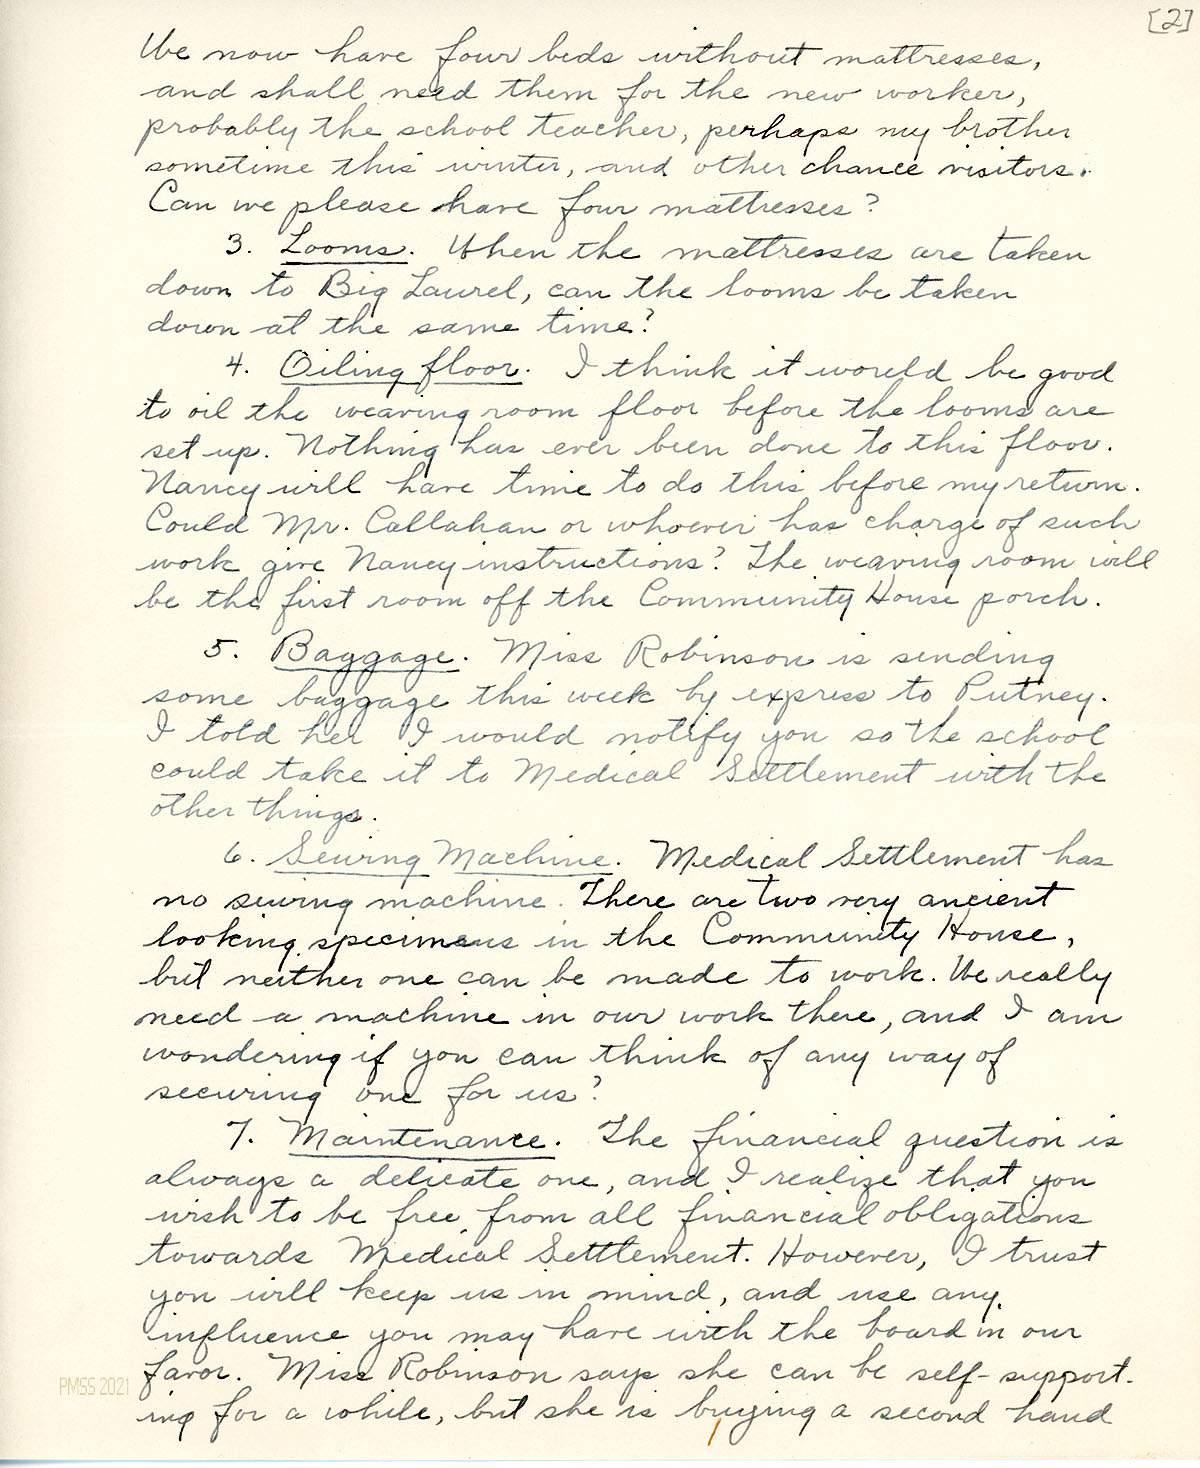 [2]
We now have four beds without mattresses,
and shall need them for the new worker,
probably the school teacher, perhaps my brother
sometime this winter, and other chance visitors.
Can we please have four mattresses?
3. Looms. When the mattresses are taken
down to Big Laurel, can the looms be taken
down at the same time?
4. Oiling floor. I think it would be good
to oil the weaving room floor before the looms are
set up. Nothing has ever been done to this floor.
Nancy will have time to do this before my return.
Could Mr. Callahan or whoever has charge of such
work give Nancy instructions? The weaving room will
be the first room off the Community House porch.
5. Baggage. Miss Robinson is sending
some baggage this week by express to Putney.
I told her I would notify you so the school
could take it to Medical Settlement with the
other things.
6. Sewing Machine. Medical Settlement has
no sewing machine. There are two very ancient
looking specimens in the Community House,
but neither one can be made to work. We really
need a machine in our work there, and I am
wondering if you can think of any way of
securing one for us?
7. Maintenance. The financial question is
always a delicate one, and I realize that you
wish to be free from all financial obligations
towards Medical Settlement. However, I trust
you will keep us in mind, and use any
influence you may have with the board in our
favor. Miss Robinson says she can be self-support-
PMSS 2021
ing for a while, but she is buying a second hand